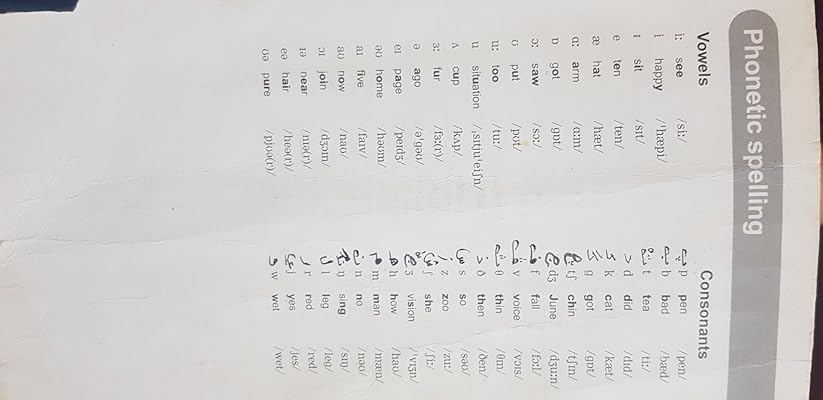 Phonetic spelling
Vowels
iː see /siː/
i happy /ˈhæpi/
ɪ sit /sɪt/
e ten /ten/
æ hat /hæt/
ɑː arm /ɑːm/
ɒ got /gɒt/
ɔː saw /sɔː/
ʊ put /pʊt/
uː too /tuː/
u situation /ˌsɪtjuˈeɪʃn/
ʌ cup /kʌp/
ɜː fur /fɜː(r)/
ə ago /əˈgəʊ/
eɪ page /peɪdʒ/
əʊ home /həʊm/
aɪ five /faɪv/
aʊ now /naʊ/
ɔɪ join /dʒɔɪn/
ɪə near /nɪə(r)/
eə hair /heə(r)/
ʊə pure /pjʊə(r)/
Consonants
p pen /pen/
b bad /bæd/
t tea /tiː/
d did /dɪd/
k cat /kæt/
g got /gɒt/
tʃ chin /tʃɪn/
dʒ June /dʒuːn/
f fall /fɔːl/
v voice /vɔɪs/
θ thin /θɪn/
ð then /ðen/
s so /səʊ/
z zoo /zuː/
ʃ she /ʃiː/
ʒ vision /ˈvɪʒn/
h how /haʊ/
m man /mæn/
n no /nəʊ/
ŋ sing /sɪŋ/
l leg /leg/
r red /red/
j yes /jes/
w wet /wet/